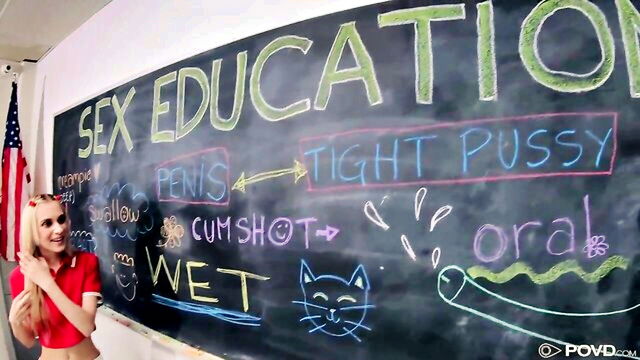 SEX EDUCATION
creampie
PENIS
TIGHT PUSSY
swallow
CUMSHOT
oral
WET
POVD.COM